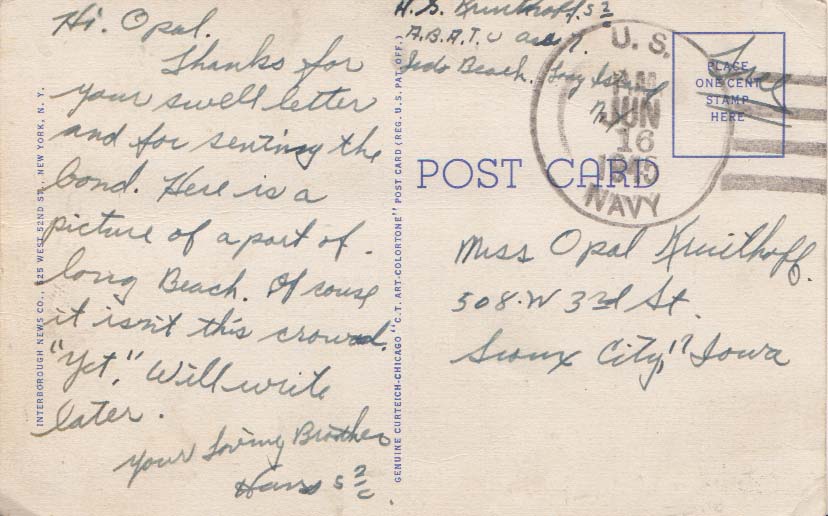 Hi. Opal.
Thanks for
your swell letter
and for senting the
bond. Here is a
picture of a part of
long Beach. Of couse
it isn't this crowd.
"Yet." Will write
later.
your Loving Brother
Hans S 2/c
INTERBOROUGH NEWS CO., 625 WEST 52ND ST., NEW YORK, N. Y.
GENUINE CURTEICH-CHICAGO "C.T. ART-COLORTONE" POST CARD (REG. U.S. PAT. OFF.)
H. G. Kruithoff S 2/c
A.B.A.T.U
Lido Beach. Long
N.Y.
U. S.
AM
JUN
16
1945
NAVY
Free
PLACE
ONE CENT
STAMP
HERE
POST CARD
Miss Opal Kruithoff.
508. W 3rd St.
Sioux City, 17 Iowa